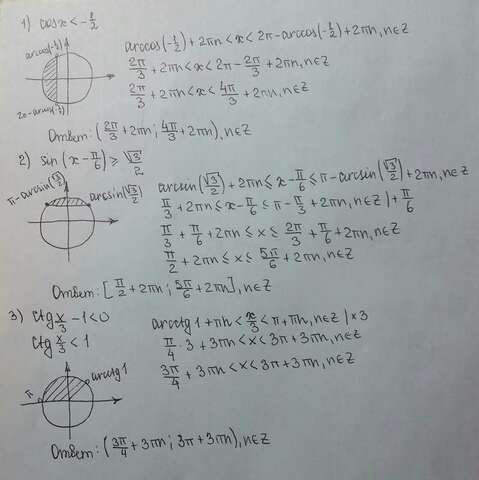 1) cos x < -1/2
arccos(-1/2) + 2πn < x < 2π - arccos(-1/2) + 2πn, n∈Z
arccos(-1/2)
2π/3 + 2πn < x < 2π - 2π/3 + 2πn, n∈Z
2π/3 + 2πn < x < 4π/3 + 2πn, n∈Z
Ответ: (2π/3 + 2πn; 4π/3 + 2πn), n∈Z
2) sin(x - π/6) ⩾ √3/2
π - arcsin(√3/2)
arcsin(√3/2)
arcsin(√3/2) + 2πn ≤ x - π/6 ≤ π - arcsin(√3/2) + 2πn, n∈Z
π/3 + 2πn ≤ x - π/6 ≤ π - π/3 + 2πn, n∈Z | + π/6
π/3 + π/6 + 2πn ≤ x ≤ 2π/3 + π/6 + 2πn, n∈Z
π/2 + 2πn ≤ x ≤ 5π/6 + 2πn, n∈Z
Ответ: [π/2 + 2πn; 5π/6 + 2πn], n∈Z
3) ctg x/3 - 1 < 0
ctg x/3 < 1
arcctg 1 + πn < x/3 < π + πn, n∈Z | × 3
π/4 · 3 + 3πn < x < 3π + 3πn, n∈Z
3π/4 + 3πn < x < 3π + 3πn, n∈Z
π
arcctg 1
Ответ: (3π/4 + 3πn; 3π + 3πn), n∈Z